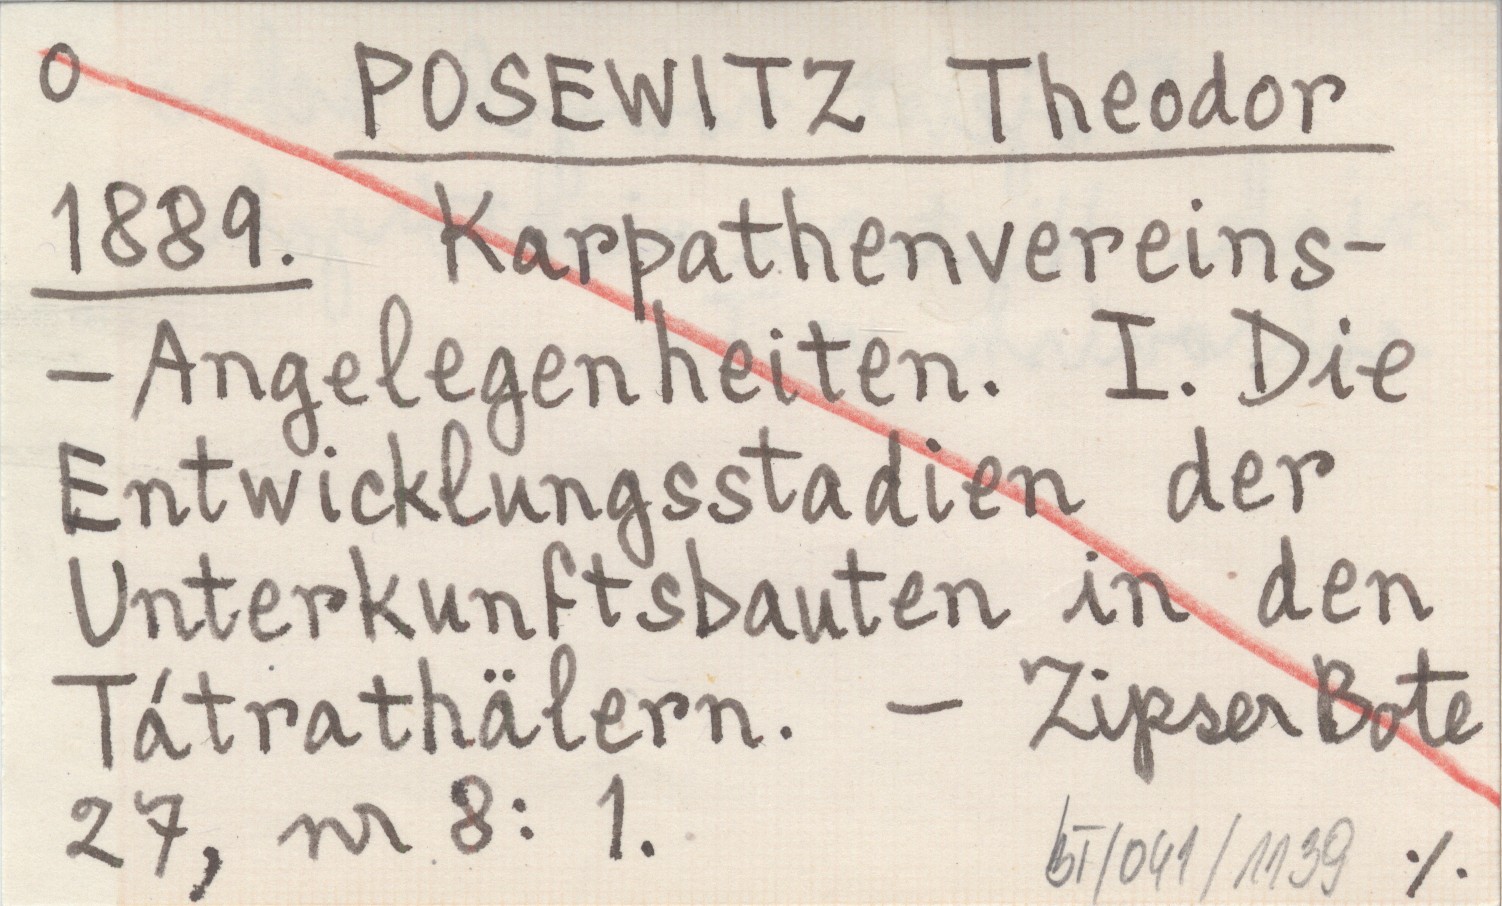 O POSEWITZ Theodor
1889. Karpathenvereins-
- Angelegenheiten. I. Die
Entwicklungsstadien der
Unterkunftsbauten in den
Tátrathälern. - Zipser Bote
27, nr 8: 1.
bT/041/1139 ·/.